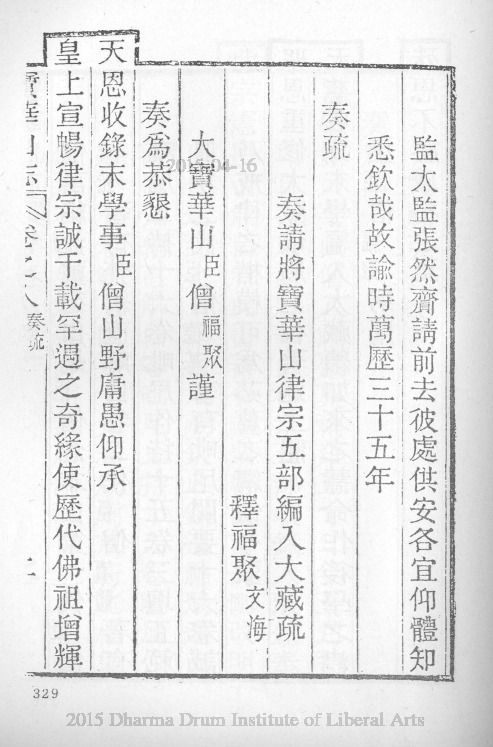 監太監張然齎請前去彼處供安各宜仰體知
悉欽哉故諭時萬歷三十五年
奏疏
奏請將寶華山律宗五部編入大藏疏
釋福聚文海
大寶華山臣僧福聚謹
奏爲恭懇
天恩收錄末學事臣僧山野庸愚仰承
皇上宣暢律宗誠千載罕遇之奇緣使歷代佛祖增輝
寶華山志 卷之八 奏疏
329
2015-04-16
2015 Dharma Drum Institute of Liberal Arts